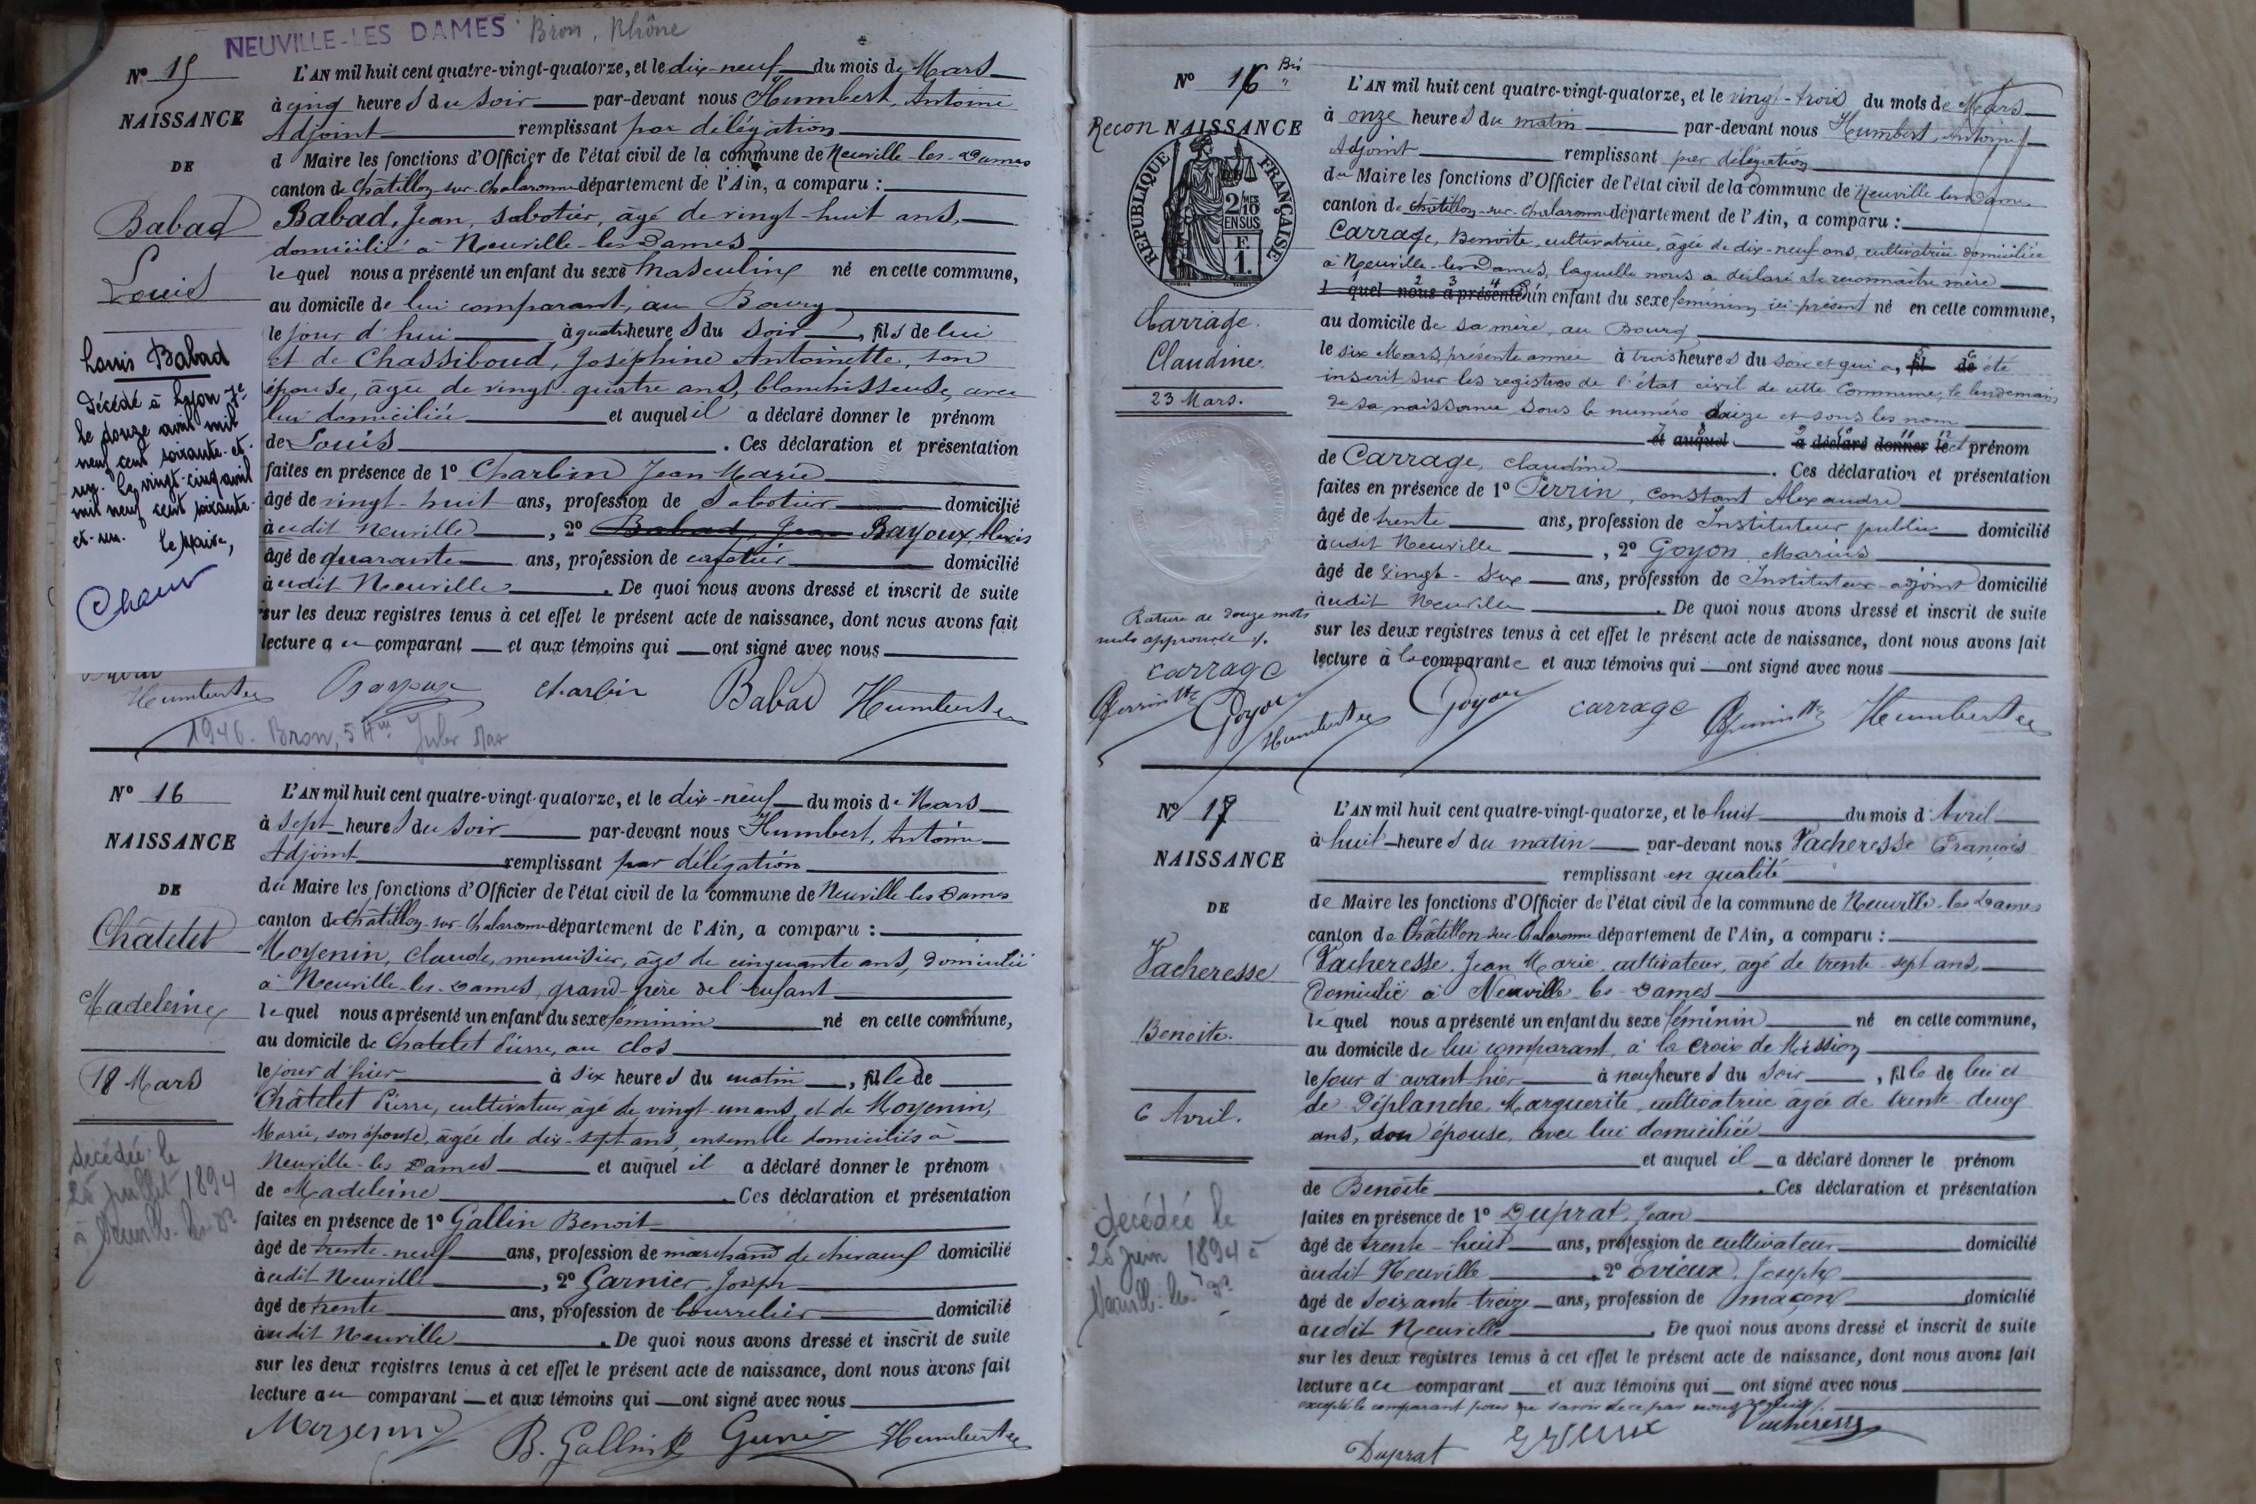 NEUVILLE-LES DAMES Bron, Rhône
N° 15
NAISSANCE
DE
Babad
Louis
Louis Babad
Décédé à Lyon 7e
le douze avril mil
neuf cent soixante-et-
un. Le vingt-cinq avril
mil neuf cent soixante-
et-un. Le Maire,
L'AN mil huit cent quatre-vingt-quatorze, et le dix-neuf du mois de Mars
à cinq heures du soir par-devant nous Humbert, Antoine
Adjoint remplissant par délégation
d Maire les fonctions d'Officier de l'état civil de la commune de Neuville-les-Dames
canton de Châtillon-sur-Chalaronne département de l'Ain, a comparu :
Babad, Jean, sabotier, âgé de vingt-huit ans,
domicilié à Neuville-les-Dames
lequel nous a présenté un enfant du sexe Masculin né en cette commune,
au domicile de lui comparant, au Bourg
le jour d'hui à quatre heures du soir, fils de lui
et de Chassiboud, Joséphine Antoinette, son
épouse, âgée de vingt-quatre ans, blanchisseuse, avec
lui domiciliée et auquel il a déclaré donner le prénom
de Louis. Ces déclaration et présentation
faites en présence de 1° Charbin Jean Marie
âgé de vingt-huit ans, profession de Sabotier domicilié
audit Neuville, 2° Babad, Jean Bayoux Alexis
âgé de quarante ans, profession de cafetier domicilié
audit Neuville. De quoi nous avons dressé et inscrit de suite
sur les deux registres tenus à cet effet le présent acte de naissance, dont nous avons fait
lecture au comparant et aux témoins qui ont signé avec nous
Humbert Bayoux Charbin Babad Humbert
1946. Bron, 5
N° 16
NAISSANCE
DE
Châtelet
Madeleine
18 Mars
décédée le
25 juillet 1894
à Neuville-les-Des
L'AN mil huit cent quatre-vingt-quatorze, et le dix-neuf du mois de Mars
à sept heures du soir par-devant nous Humbert, Antoine
Adjoint remplissant par délégation
du Maire les fonctions d'Officier de l'état civil de la commune de Neuville-les-Dames
canton de Châtillon-sur-Chalaronne département de l'Ain, a comparu :
Moyenin, Claude, menuisier, âgé de cinquante ans, domicilié
à Neuville-les-Dames, grand-père de l'enfant
lequel nous a présenté un enfant du sexe féminin né en cette commune,
au domicile de Chatelet Pierre, au clos
le jour d'hier à six heures du matin, fille de
Châtelet Pierre, cultivateur, âgé de vingt-un ans, et de Moyenin,
Marie, son épouse, âgée de dix-sept ans, ensemble domiciliés à
Neuville-les-Dames et auquel il a déclaré donner le prénom
de Madeleine. Ces déclaration et présentation
faites en présence de 1° Gallin Benoit
âgé de trente-neuf ans, profession de marchand de chevaux domicilié
audit Neuville, 2° Garnier, Joseph
âgé de trente ans, profession de bourrelier domicilié
audit Neuville. De quoi nous avons dressé et inscrit de suite
sur les deux registres tenus à cet effet le présent acte de naissance, dont nous avons fait
lecture au comparant et aux témoins qui ont signé avec nous
Moyenin B. Gallin Humbert
N° 16 Bis
Recon NAISSANCE
REPUBLIQUE FRANÇAISE
2 MES
10
EN SUS
F.
1.
Carrage
Claudine
23 Mars.
Rature de douze mots
nuls approuvée
Carrage
Goyon
Humbert
L'AN mil huit cent quatre-vingt-quatorze, et le vingt-trois du mois de Mars
à onze heures du matin par-devant nous Humbert, Antoine
Adjoint remplissant par délégation
du Maire les fonctions d'Officier de l'état civil de la commune de Neuville-les-Dames
canton de Châtillon-sur-Chalaronne département de l'Ain, a comparu :
Carrage, Benoite, cultivatrice, âgée de dix-neuf ans, cultivatrice domiciliée
à Neuville-les-Dames, laquelle nous a déclaré se reconnaître mère
l quel nous a présenté d'un enfant du sexe féminin, ici présent né en cette commune,
au domicile de sa mère, au Bourg
le six Mars, présente année à trois heures du soir et qui a, fil de été
inscrit sur les registres de l'état civil de cette Commune, le lendemain
de sa naissance sous le numéro douze et sous les nom
et auquel a déclaré donner le et prénom
de Carrage, Claudine. Ces déclaration et présentation
faites en présence de 1° Perrin, Constant Alexandre
âgé de trente ans, profession de Instituteur public domicilié
audit Neuville, 2° Goyon Marius
âgé de vingt-six ans, profession de Instituteur-adjoint domicilié
audit Neuville. De quoi nous avons dressé et inscrit de suite
sur les deux registres tenus à cet effet le présent acte de naissance, dont nous avons fait
lecture à la comparante et aux témoins qui ont signé avec nous
Goyon Carrage Humbert
N° 17
NAISSANCE
DE
Vacheresse
Benoite.
6 Avril.
décédée le
25 juin 1894 à
Neuville-les-Des
L'AN mil huit cent quatre-vingt-quatorze, et le huit du mois d'Avril
à huit heures du matin par-devant nous Vacheresse François
remplissant en qualité
de Maire les fonctions d'Officier de l'état civil de la commune de Neuville-les-Dames
canton de Châtillon-sur-Chalaronne département de l'Ain, a comparu :
Vacheresse, Jean Marie, cultivateur, âgé de trente-sept ans,
domicilié à Neuville-les-Dames
lequel nous a présenté un enfant du sexe féminin né en cette commune,
au domicile de lui comparant, à la Croix de Mission
le jour d'avant hier à neuf heures du soir, fille de lui et
de Déplanche, Marguerite, cultivatrice âgée de trente-deux
ans, son épouse, avec lui domiciliée
et auquel il a déclaré donner le prénom
de Benoite. Ces déclaration et présentation
faites en présence de 1° Duprat, Jean
âgé de trente-huit ans, profession de cultivateur domicilié
audit Neuville, 2° Ovieux, Joseph
âgé de soixante-treize ans, profession de maçon domicilié
audit Neuville. De quoi nous avons dressé et inscrit de suite
sur les deux registres tenus à cet effet le présent acte de naissance, dont nous avons fait
lecture au comparant et aux témoins qui ont signé avec nous
excepté le comparant pour ne savoir de ce par nous requis.
Duprat Vacheresse